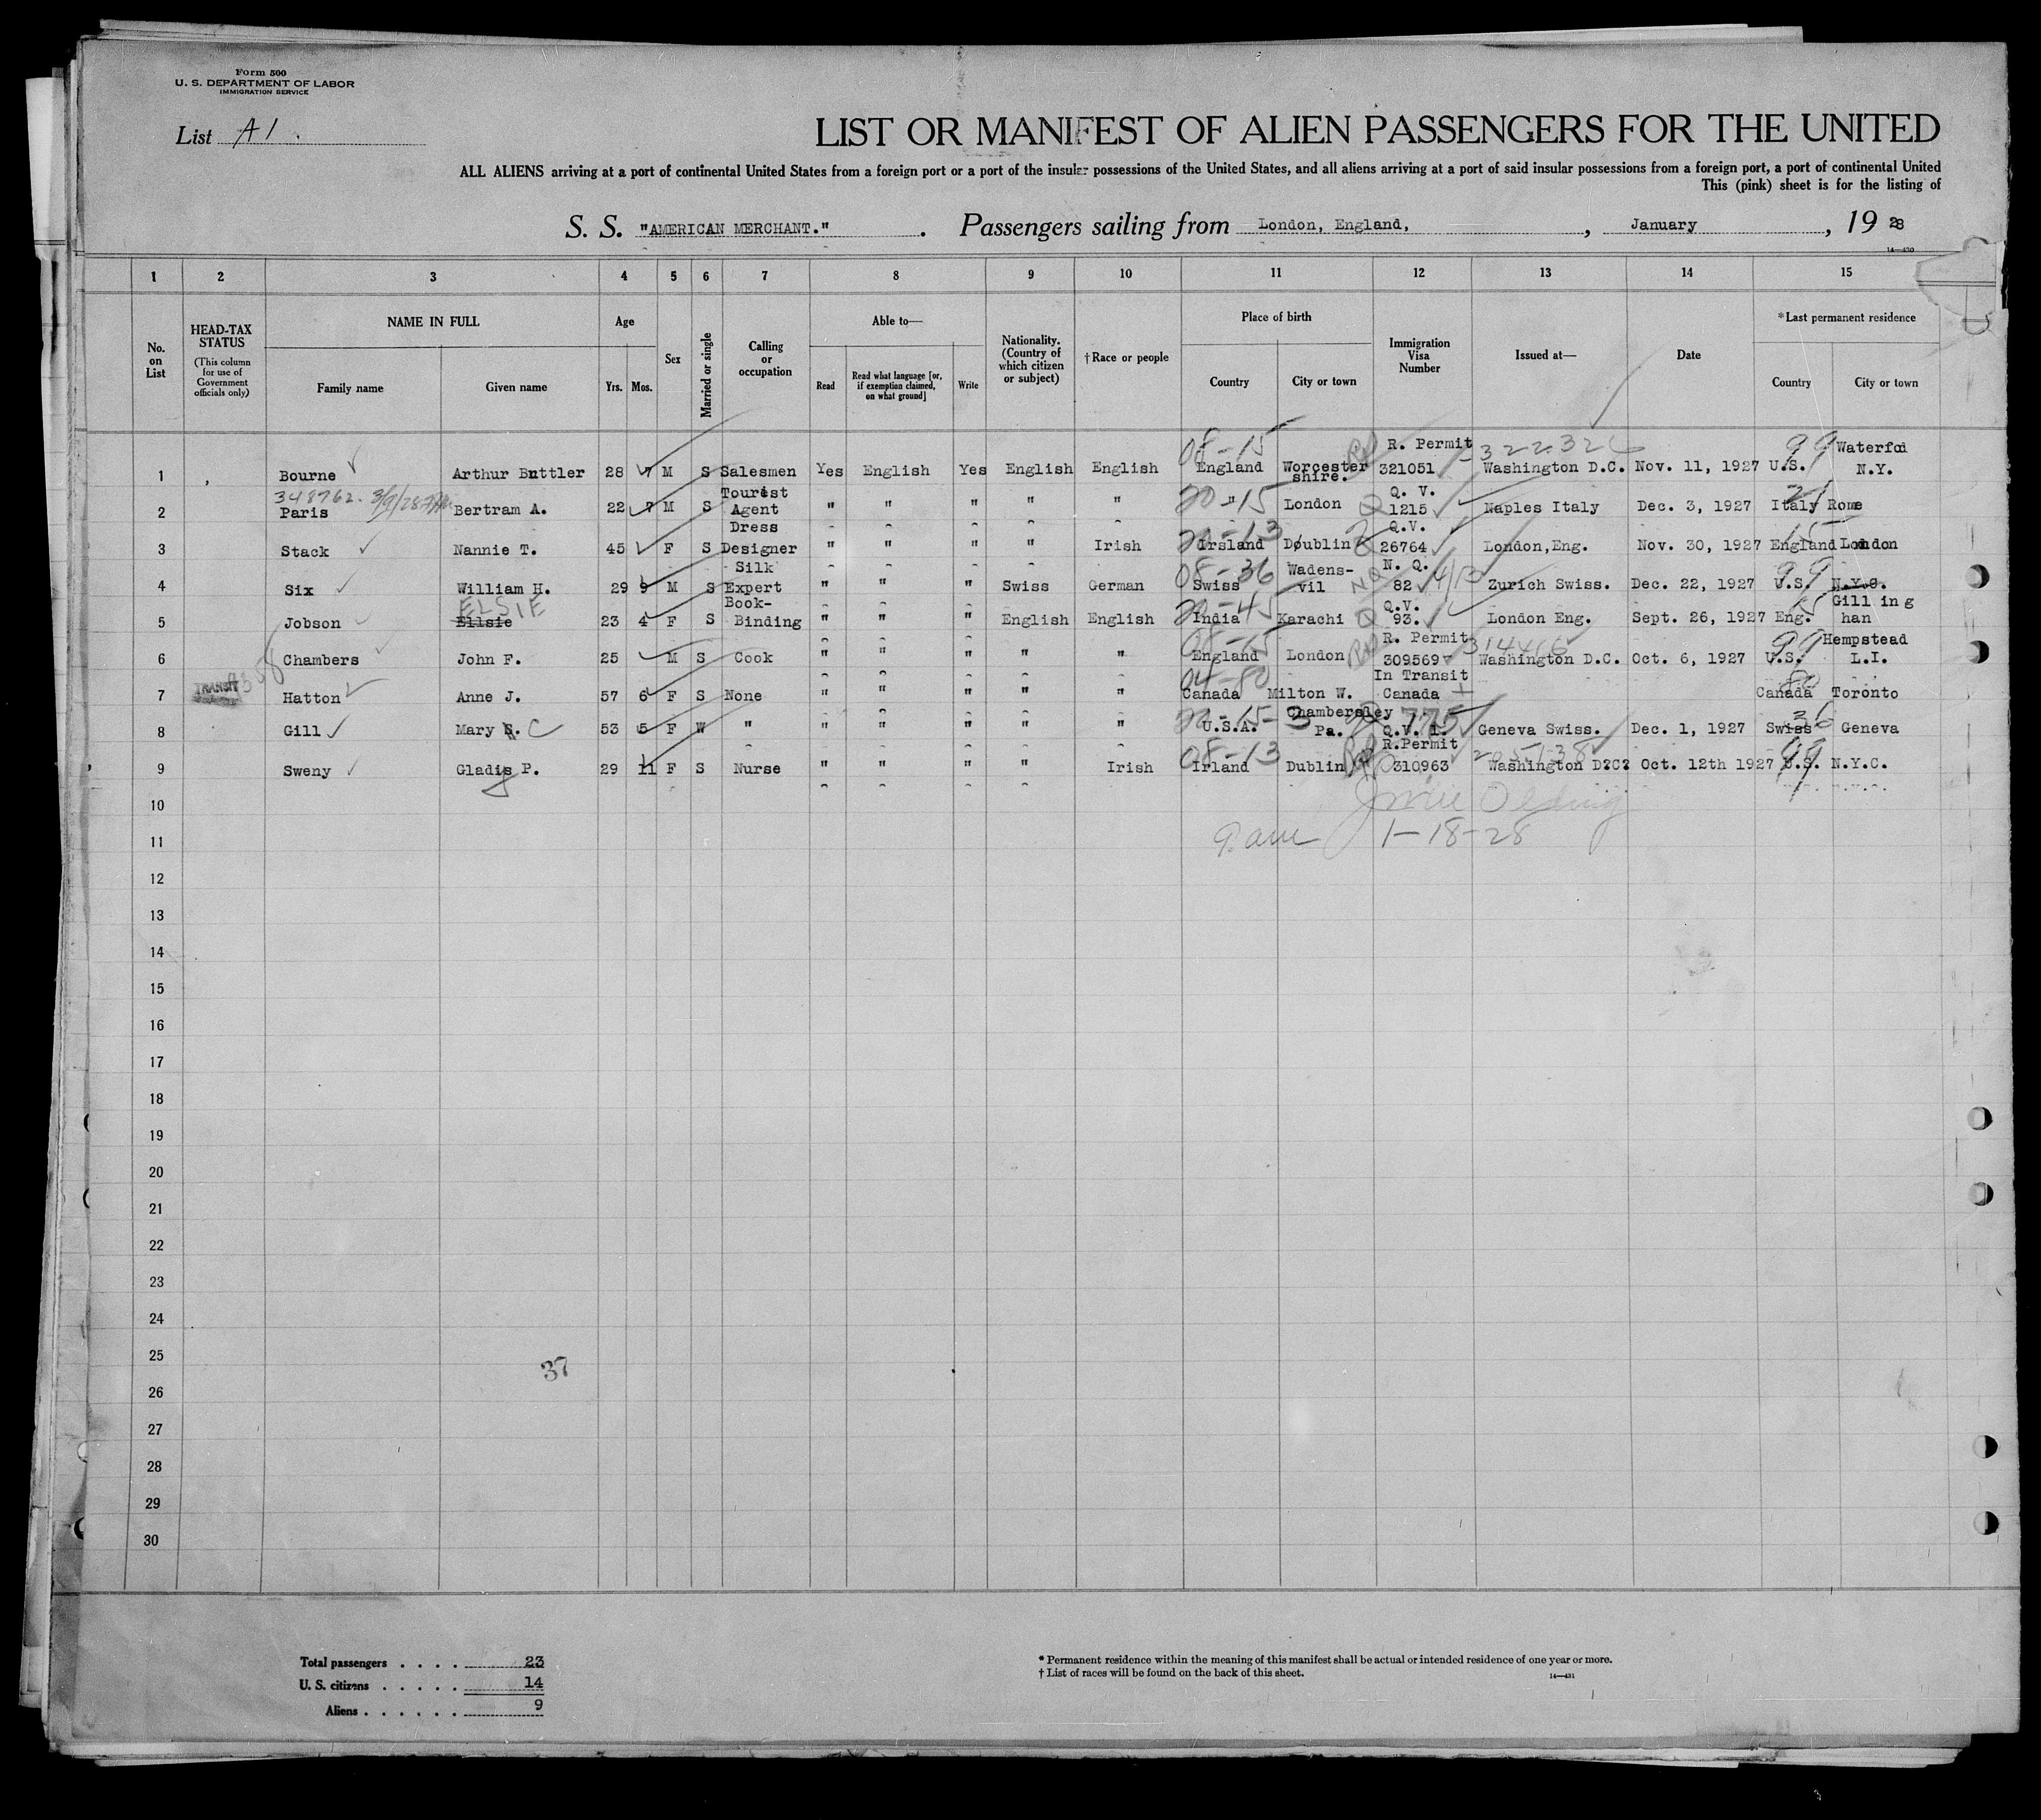 Form 500
U. S. DEPARTMENT OF LABOR
IMMIGRATION SERVICE
List A1.
LIST OR MANIFEST OF ALIEN PASSENGERS FOR THE UNITED
ALL ALIENS arriving at a port of continental United States from a foreign port or a port of the insular possessions of the United States, and all aliens arriving at a port of said insular possessions from a foreign port, a port of continental United
This (pink) sheet is for the listing of
S. S. "AMERICAN MERCHANT." . Passengers sailing from London, England, , January , 19 28
14—430
1 2 3 4 5 6 7 8 9 10 11 12 13 14 15
No. on List
HEAD-TAX STATUS
(This column for use of Government officials only)
NAME IN FULL
Family name Given name
Age
Yrs. Mos.
Sex
Married or single
Calling or occupation
Able to—
Read
Read what language [or, if exemption claimed, on what ground]
Write
Nationality. (Country of which citizen or subject)
†Race or people
Place of birth
Country City or town
Immigration Visa Number
Issued at—
Date
*Last permanent residence
Country City or town
08-15 R. Permit 322326 99 Waterfod
1 Bourne Arthur Buttler 28 7 M S Salesmen Yes English Yes English English England Worcester shire. 321051 Washington D.C. Nov. 11, 1927 U.S. N.Y.
348762. 3/9/28 Tourist 20-15 Q. V. 21
2 Paris Bertram A. 22 7 M S Agent " " " " " " London 1215 Naples Italy Dec. 3, 1927 Italy Rome
Dress 20-13 Q.V. 15
3 Stack Nannie T. 45 F S Designer " " " " Irish Irsland Doublin 26764 London,Eng. Nov. 30, 1927 England London
Silk 08-36 Wadens- N. Q. 99
4 Six William H. 29 9 M S Expert " " " Swiss German Swiss vil 82 4/13 Zurich Swiss. Dec. 22, 1927 U.S. N.Y.C.
ELSIE Book- 20-45 Q.V. 15 Gilling
5 Jobson Ellsie 23 4 F S Binding " " " English English India Karachi 93. London Eng. Sept. 26, 1927 Eng. han
08-15 R. Permit 314416 99 Hempstead
6 Chambers John F. 25 M S Cook " " " " " England London 309569 Washington D.C. Oct. 6, 1927 U.S. L.I.
TRANSIT 04-80 In Transit 80
7 Hatton Anne J. 57 6 F S None " " " " " Canada Milton W. Canada Canada Toronto
20-15-3 Chambersley 775
8 Gill Mary S. C 53 5 F W " " " " " " U.S.A. Pa. Q.V. 1. Geneva Swiss. Dec. 1, 1927 Swiss Geneva
08-13 R.Permit 205138 99
9 Sweny Gladis P. 29 11 F S Nurse " " " " Irish Irland Dublin 310963 Washington D?C? Oct. 12th 1927 U.S. N.Y.C.
10
11 1-18-28
12
13
14
15
16
17
18
19
20
21
22
23
24
25
37
26
27
28
29
30
Total passengers . . . . 23
U. S. citizens . . . . . 14
Aliens . . . . . . 9
* Permanent residence within the meaning of this manifest shall be actual or intended residence of one year or more.
† List of races will be found on the back of this sheet.
14—431